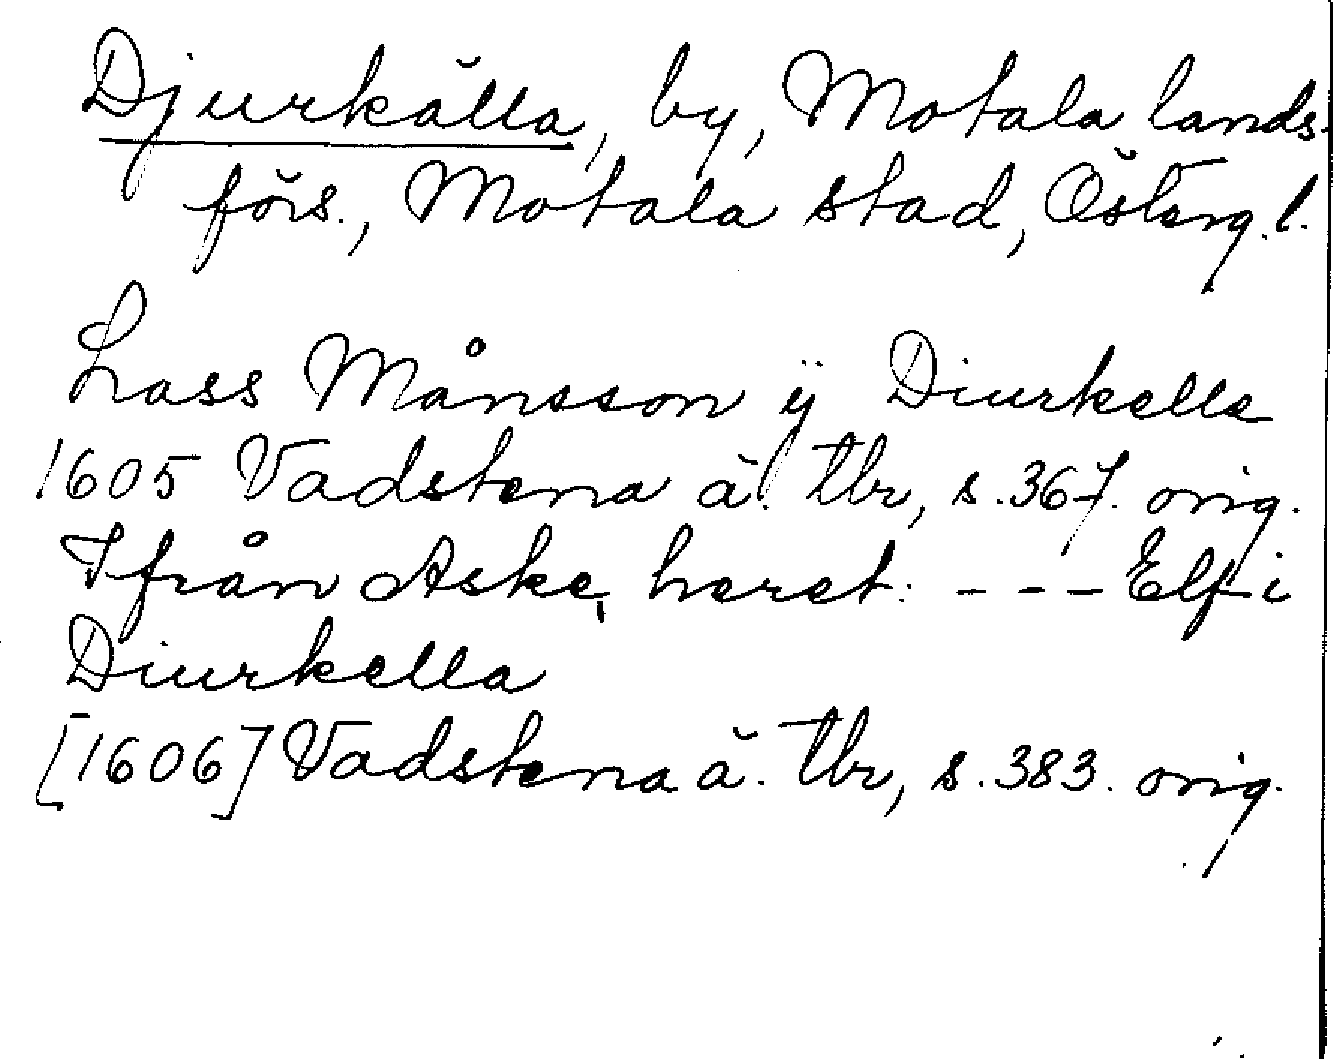 Djurkälla, by, Motala lands-
förs., Motala stad, Österg. l.
Lass Månsson ÿ Diurkelle
1605 Vadstena ä. tbr, s. 367. orig.
Ifrån Aske, heret: --- Elf i
Diurkella
[1606] Vadstena ä. tbr, s. 383. orig.